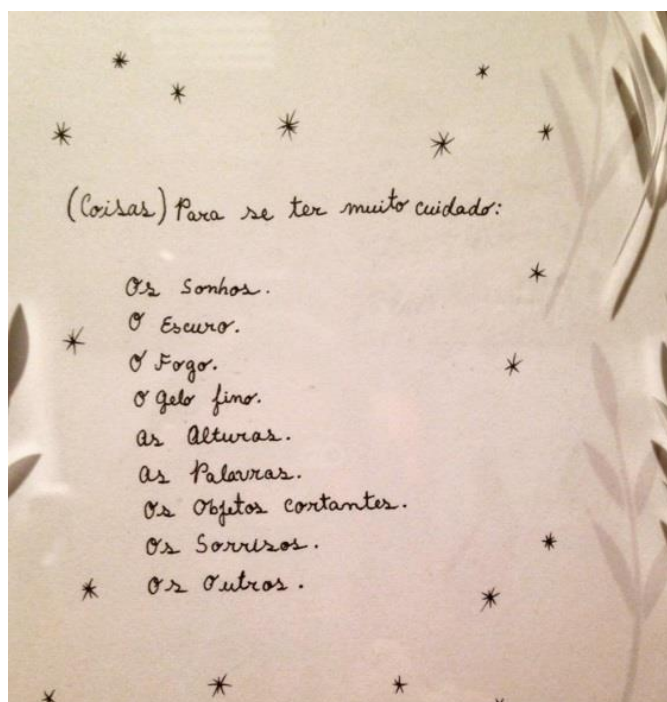 (Coisas) Para se ter muito cuidado:
Os Sonhos.
O Escuro.
O Fogo.
O Gelo fino.
As Alturas.
As Palavras.
Os Objetos cortantes.
Os Sorrisos.
Os Outros.